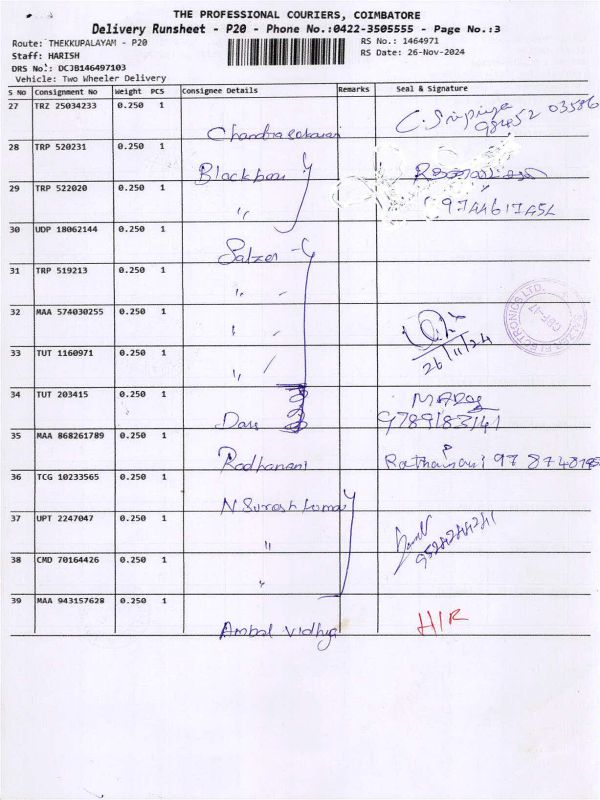 THE PROFESSIONAL COURIERS, COIMBATORE
Delivery Runsheet - P20 - Phone No.:0422-3505555 - Page No.:3
Route: THEKKUPALAYAM - P20
RS No.: 1464971
Staff: HARISH
RS Date: 26-Nov-2024
DRS No.: DCJB146497103
Vehicle: Two Wheeler Delivery
S No Consignment No Weight PCS Consignee Details Remarks Seal & Signature
27 TRZ 25034233 0.250 1
Chandrasekaran
C. Sripriya
98452 03586
28 TRP 520231 0.250 1
29 TRP 522020 0.250 1
"
9744617454
30 UDP 18062144 0.250 1
Salzer
31 TRP 519213 0.250 1
"
32 MAA 574030255 0.250 1
"
26/11/24
ELECTRONICS LTD.
33 TUT 1160971 0.250 1
"
34 TUT 203415 0.250 1
Dars
9789183141
35 MAA 868261789 0.250 1
Radhamani
Rathamani 97 8748195
36 TCG 10233565 0.250 1
N Suresh Kumar
37 UPT 2247047 0.250 1
"
38 CMD 70164426 0.250 1
"
39 MAA 943157628 0.250 1
Ambal Vidhya
H/R